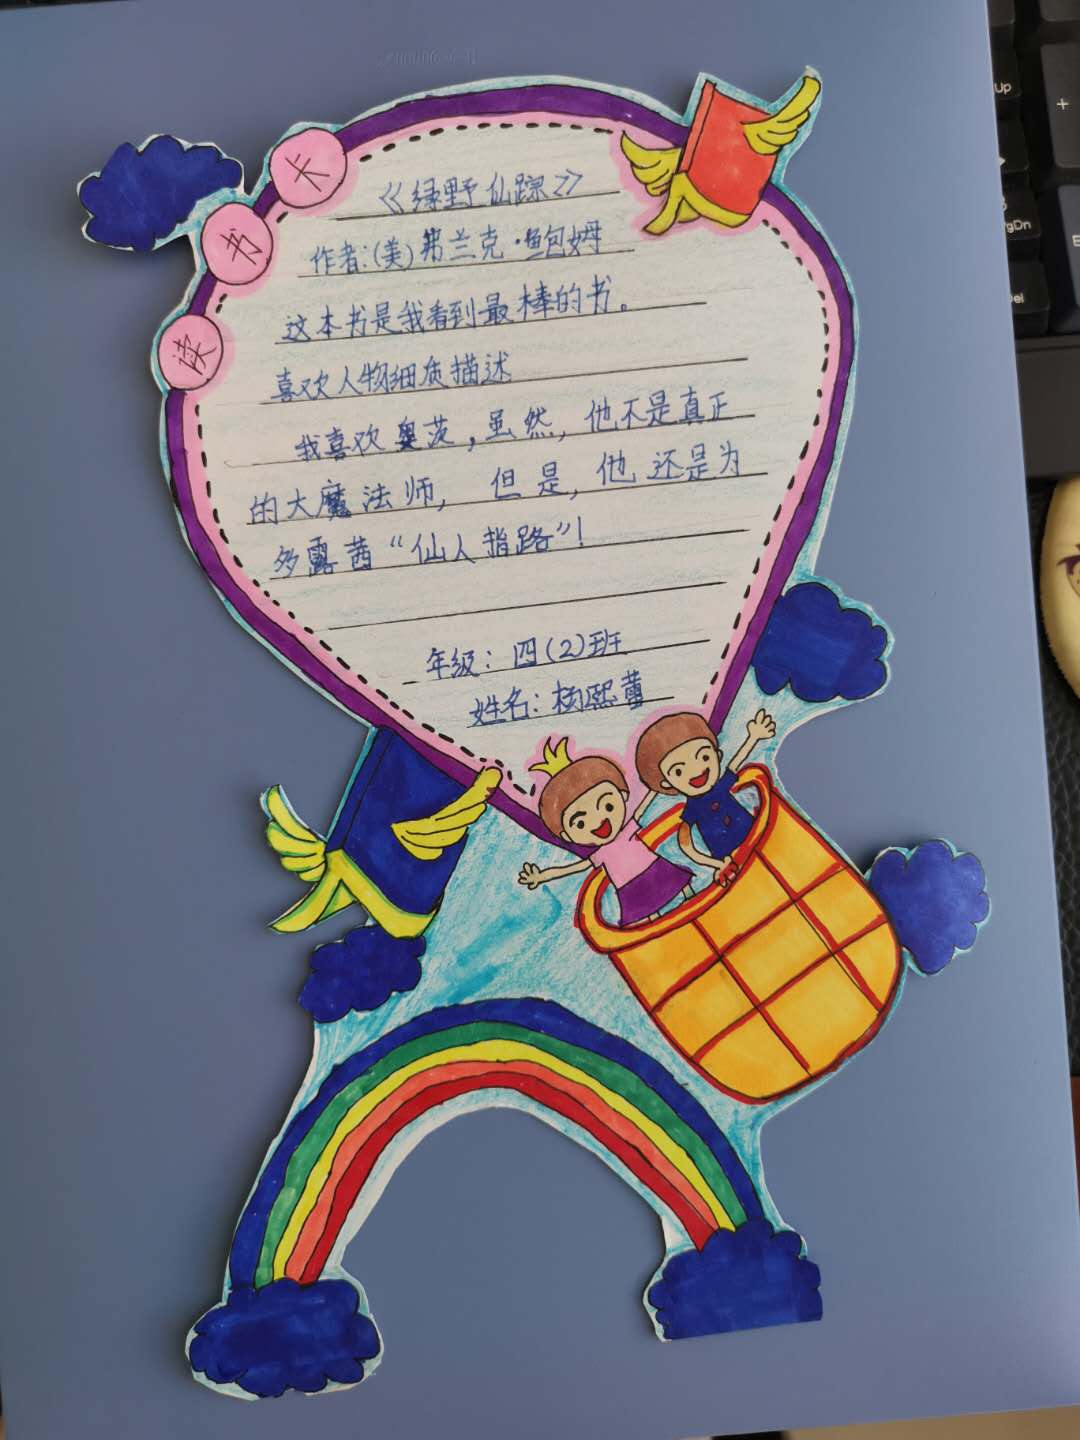 读书卡
《绿野仙踪》
作者:(美)弗兰克·鲍姆
这本书是我看到最棒的书。
喜欢人物细质描述
我喜欢奥茨,虽然,他不是真正
的大魔法师, 但是,他还是为
多露茜“仙人指路”!
年级:四(2)班
姓名:杨熙蕾
Up
PgDn
+